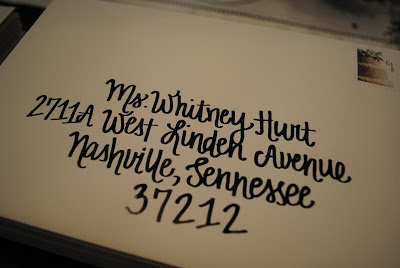 Ms. Whitney Hurt
2711A West Linden Avenue
Nashville, Tennessee
37212